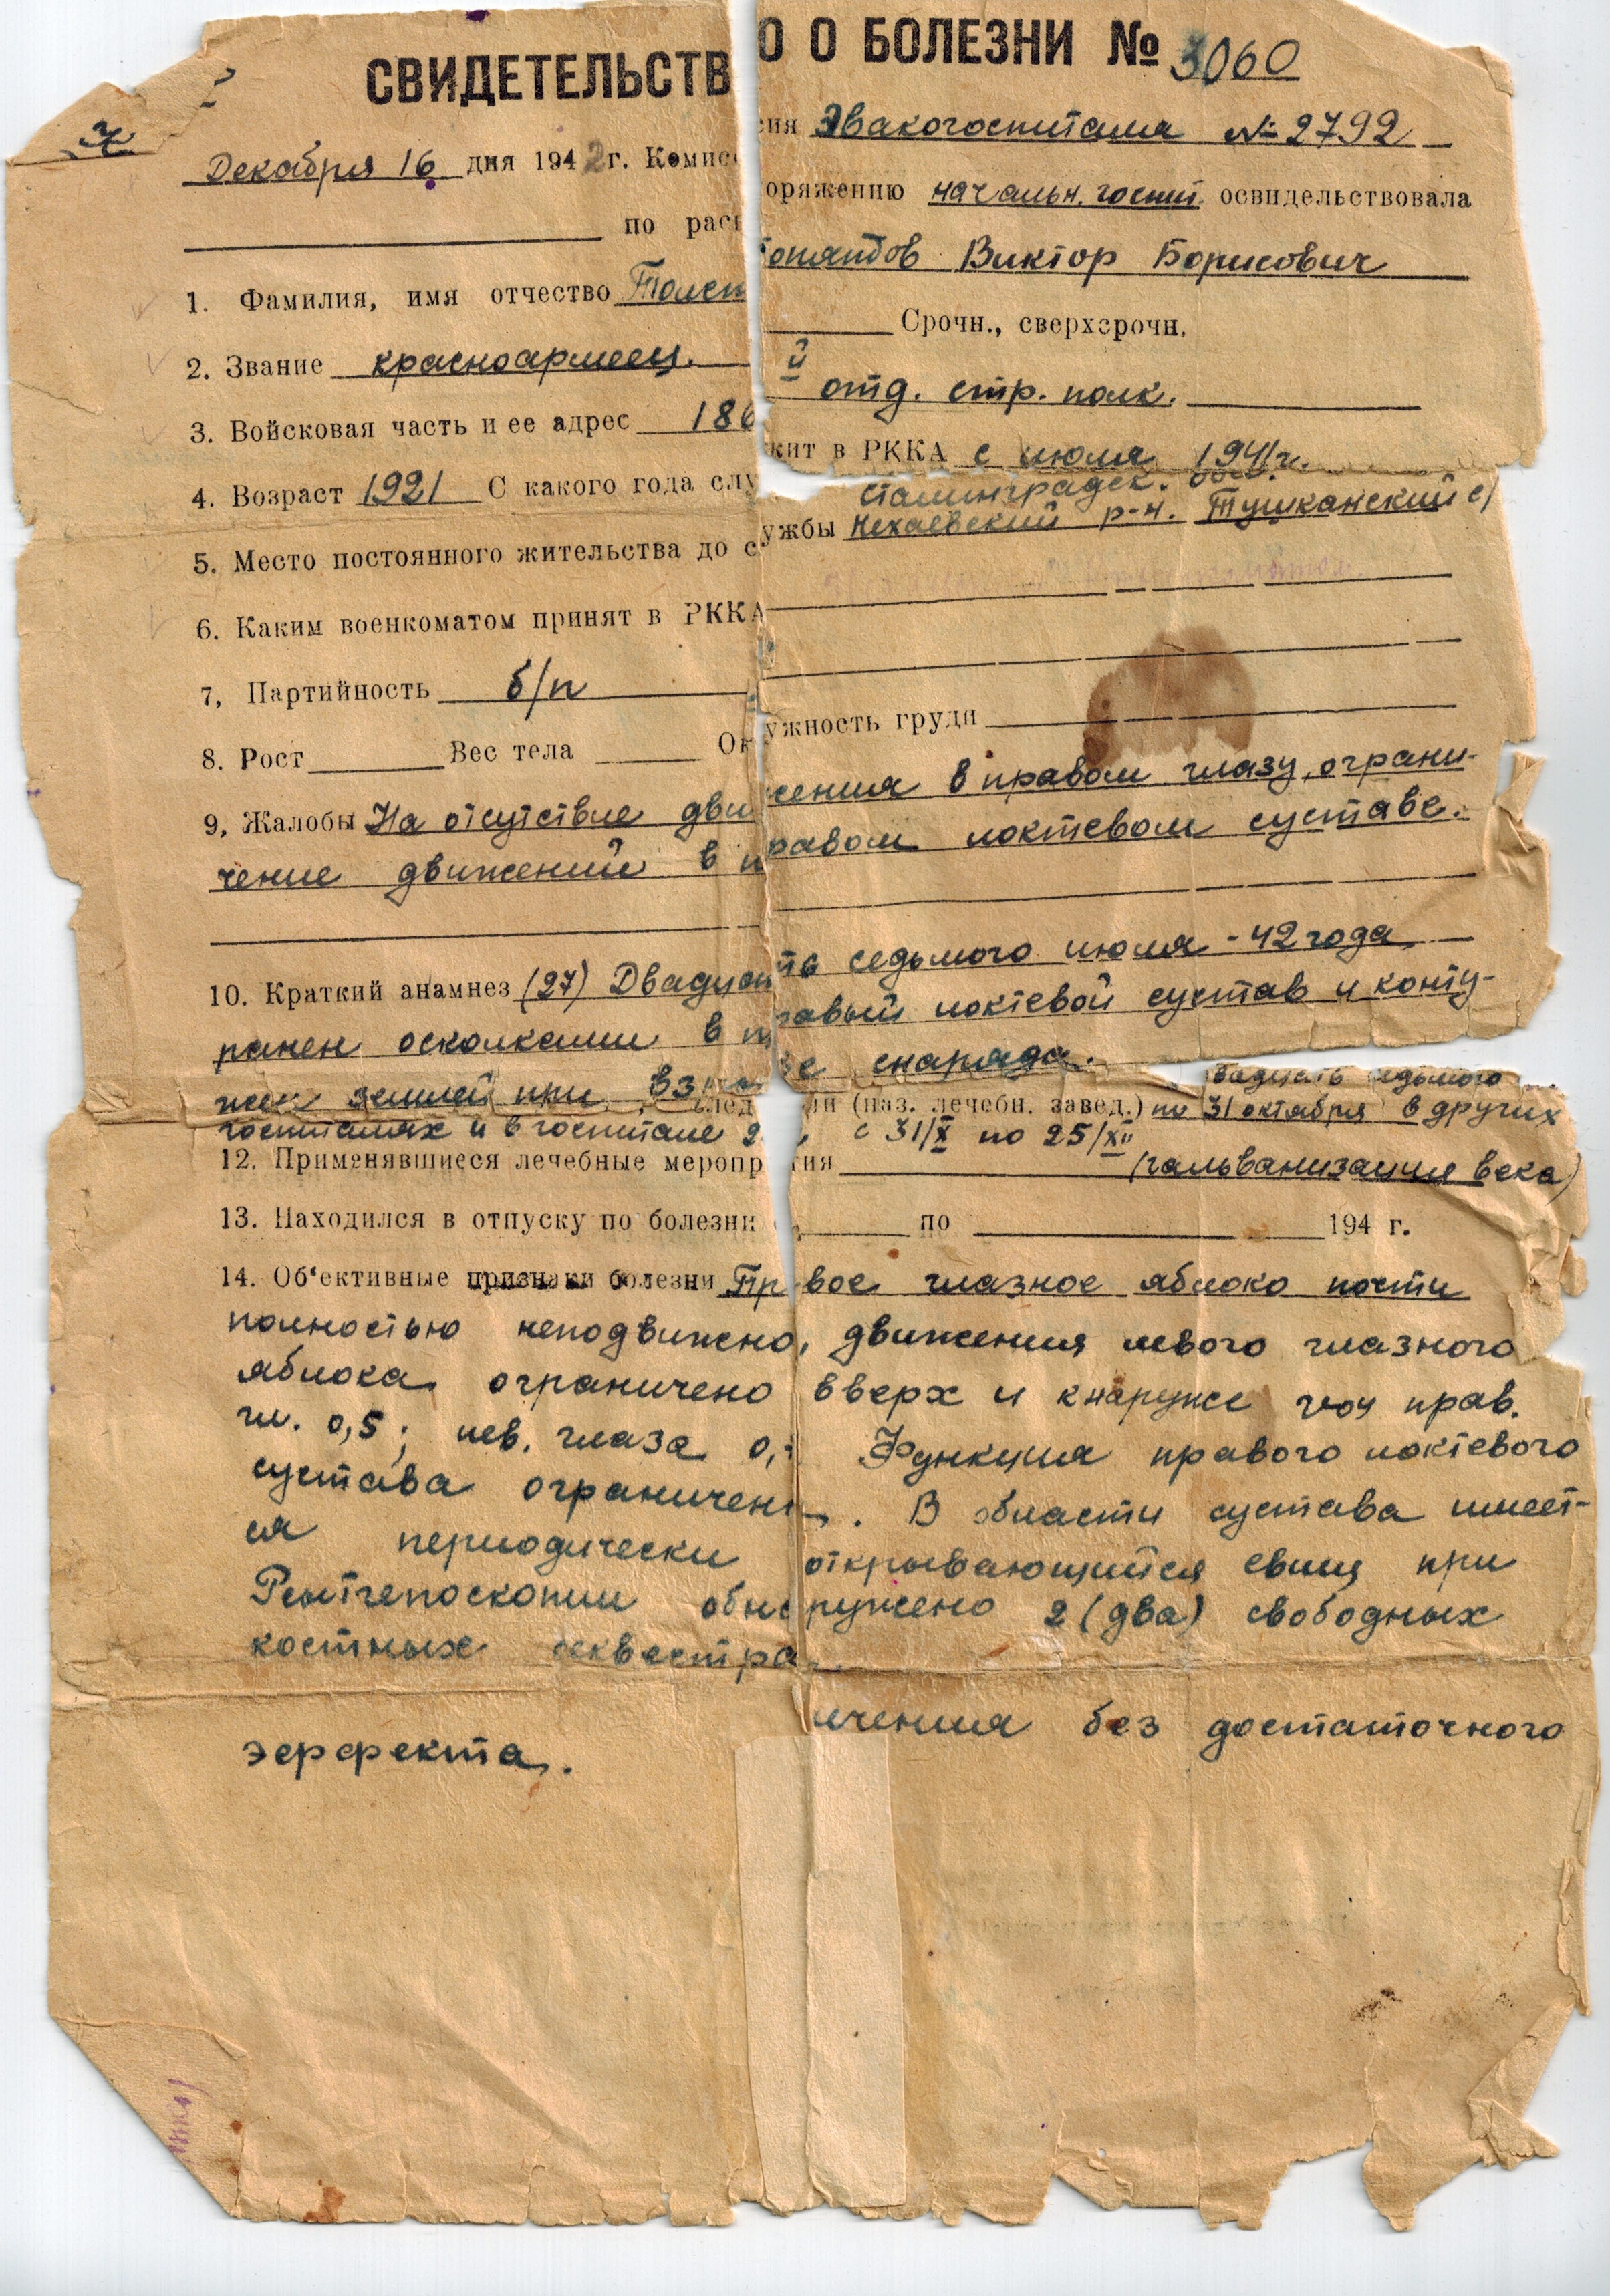 СВИДЕТЕЛЬСТВО О БОЛЕЗНИ № 3060
Декабря 16 дня 1942 г. Комиссия Эвакогоспиталя № 2792
по распоряжению начальн. госпит. освидельствовала
1. Фамилия, имя отчество Виктор Борисович
2. Звание красноармеец. Срочн., сверхсрочн.
3. Войсковая часть и ее адрес 186 й отд. стр. полк.
4. Возраст 1921 С какого года служит в РККА с июля 1941 г.
Сталинградск. обл.
5. Место постоянного жительства до службы Нехаевский р-н. Тушканский с/
6. Каким военкоматом принят в РККА
7, Партийность б/п
8. Рост Вес тела Окружность груди
9, Жалобы На отсутствие движения в правом глазу, ограни-
чение движений в правом локтевом суставе.
10. Краткий анамнез (27) Двадцать седьмого июля - 42 года
ранен осколками в правый локтевой сустав и конту-
жен землей при взрыве снаряда.
двадцать седьмого
(наз. лечебн. завед.) по 31 октября в других
госпиталях и в госпитале с 31/X по 25/XII
12. Применявшиеся лечебные мероприятия (гальванизация века)
13. Находился в отпуску по болезни с по 194 г.
14. Об'ективные признаки болезни Правое глазное яблоко почти
полностью неподвижно, движения левого глазного
яблока ограничено вверх и кнаружи прав.
гл. 0,5; лев. глаза 0, Функция правого локтевого
сустава ограничена. В области сустава имеет-
ся периодически открывающийся свищ при
Рентгеноскопии обнаружено 2 (два) свободных
костных секвестра.
лечения без достаточного
эффекта.